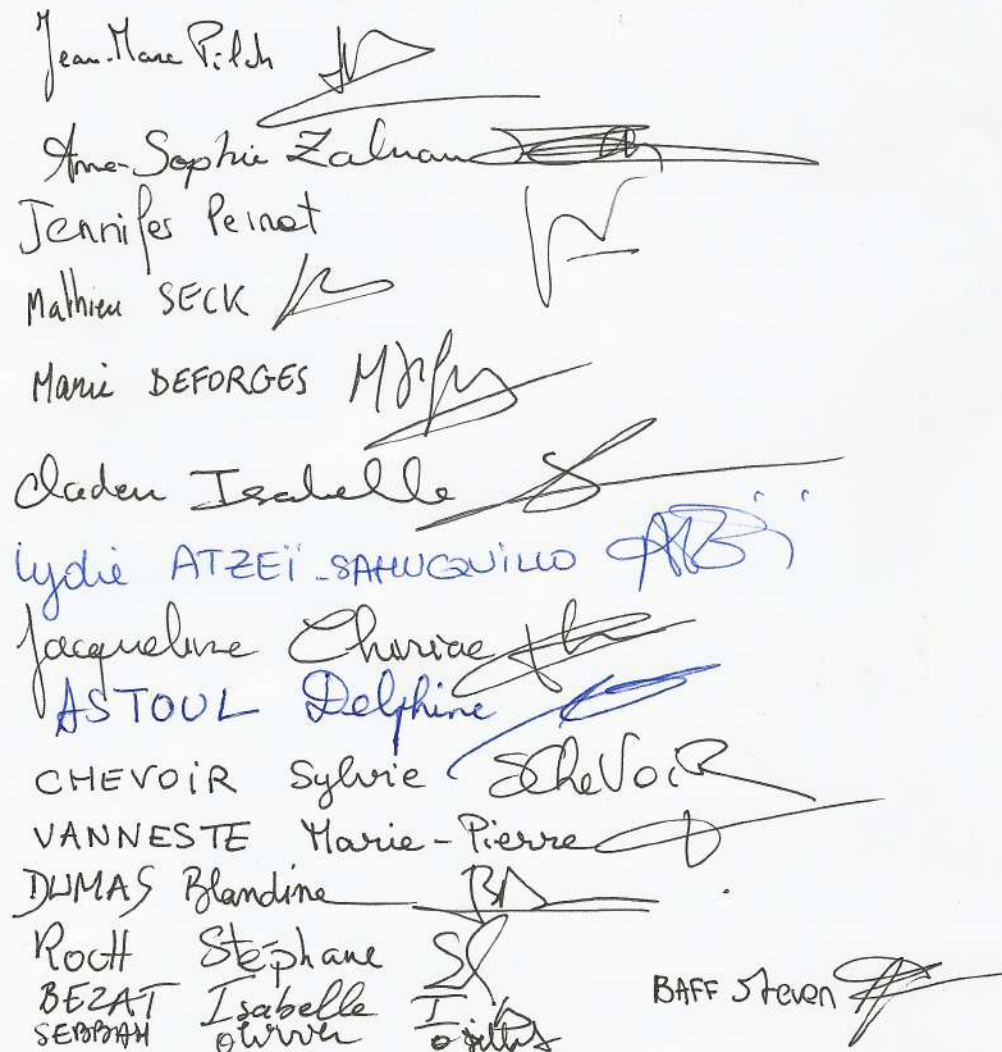 Jean-Marc Pilch
Anne-Sophie Zaluan
Jennifer Peinot
Mathieu SECK
Marie DEFORGES
Claden Isabelle
Lydie ATZEÏ-SAHUQUILLO
Jacqueline Chariae
ASTOUL Delphine
CHEVOIR Sylvie SCheVoiR
VANNESTE Marie-Pierre
DUMAS Blandine
ROCH Stéphane
BEZAT Isabelle
BAFF Steven
SEBBAH